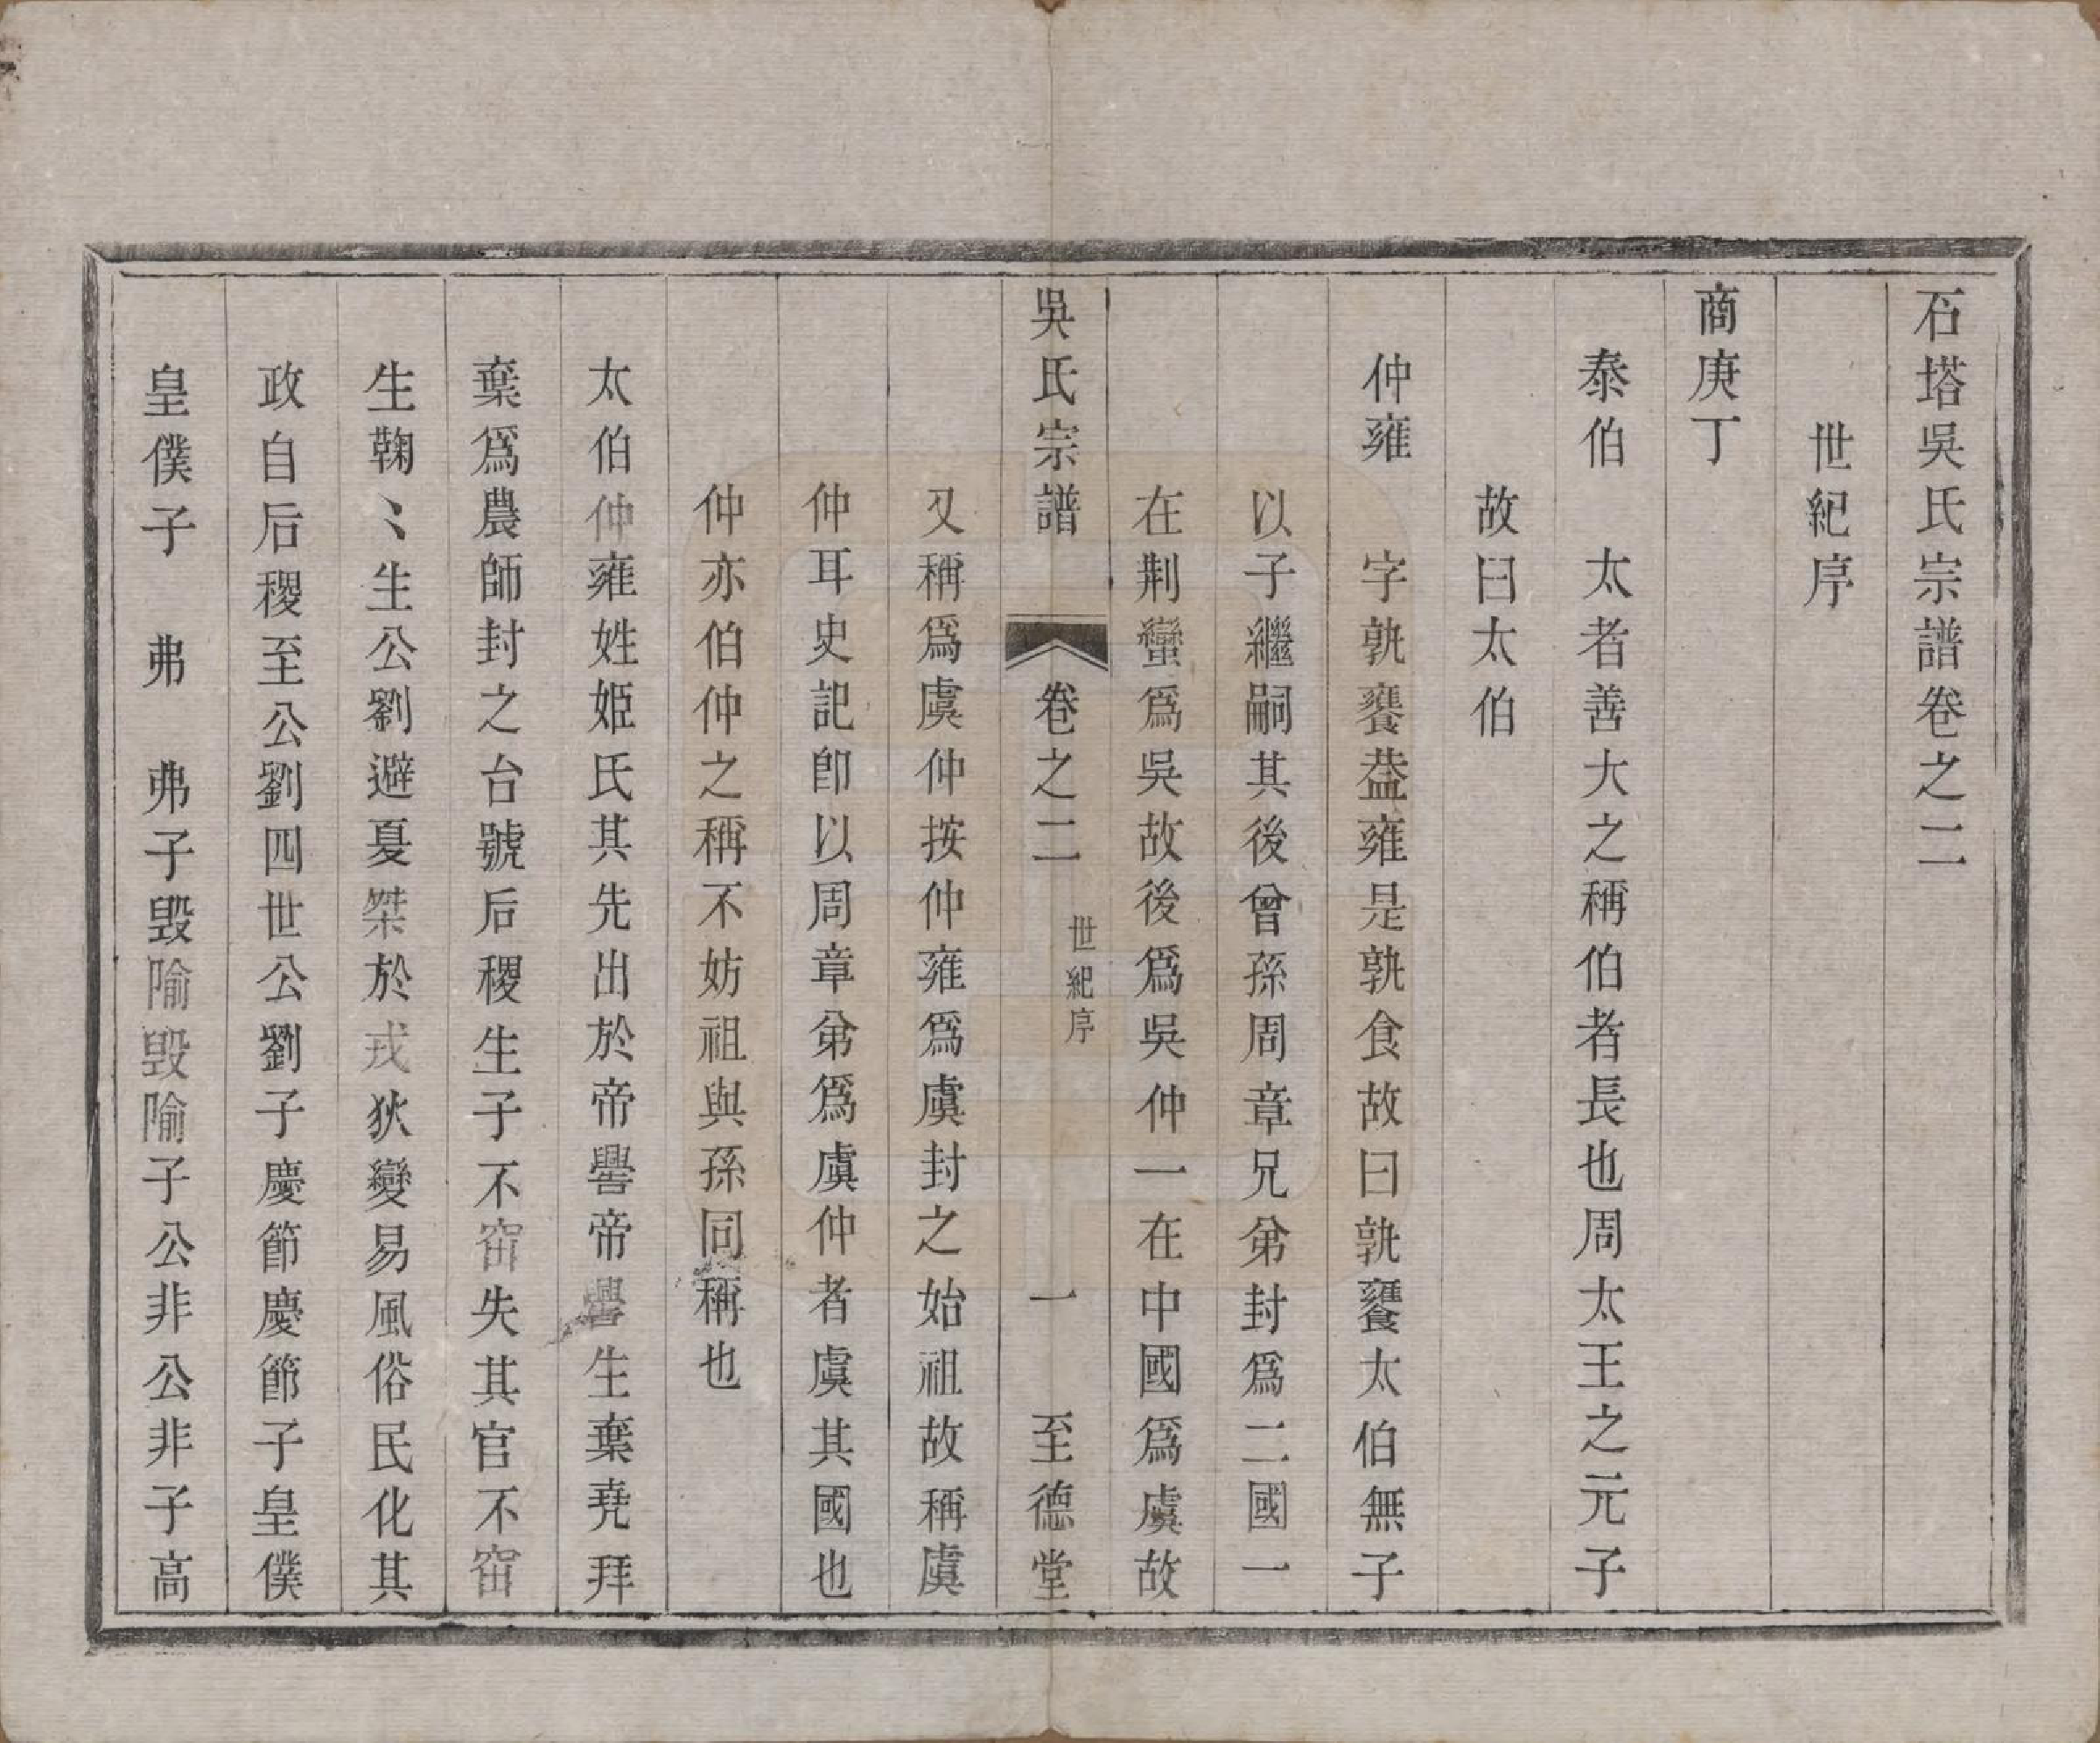 石塔吳氏宗譜卷之二
世紀序
商庚丁
泰伯　太者善大之稱伯者長也周太王之元子
故曰太伯
仲雍　字孰饔葢雍是孰食故曰孰饔太伯無子
以子繼嗣其後曾孫周章兄弟封爲二國一
在荆蠻爲吳故後爲吳仲一在中國爲虞故
吳氏宗譜　卷之二　世紀序　一　至德堂
又稱爲虞仲按仲雍爲虞封之始祖故稱虞
仲耳史記卽以周章弟爲虞仲者虞其國也
仲亦伯仲之稱不妨祖與孫同稱也
太伯仲雍姓姬氏其先出於帝嚳帝嚳生棄堯拜
棄爲農師封之台號后稷生子不窋失其官不窋
生鞠〻生公劉避夏桀於戎狄變易風俗民化其
政自后稷至公劉四世公劉子慶節慶節子皇僕
皇僕子　弗　弗子毁隃毁隃子公非公非子高